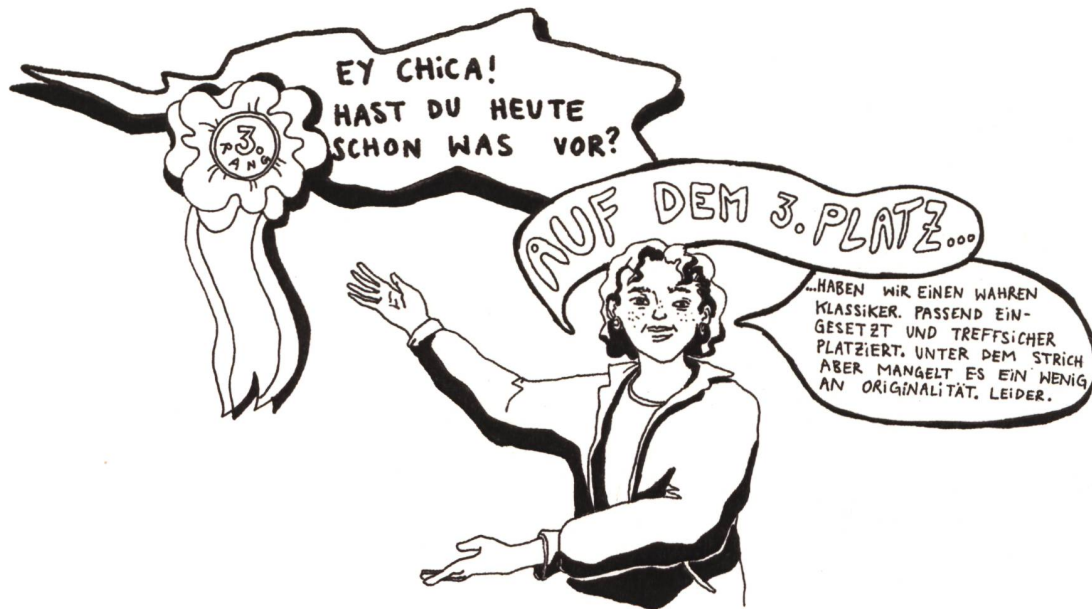 EY CHiCA!
HAST DU HEUTE
SCHON WAS VOR?
3.
RANG
AUF DEM 3. PLATZ...
...HABEN WiR EiNEN WAHREN
KLASSiKER. PASSEND EiN-
GESETZT UND TREFFSiCHER
PLATZiERT. UNTER DEM STRiCH
ABER MANGELT ES EiN WENiG
AN ORiGiNALiTÄT. LEiDER.